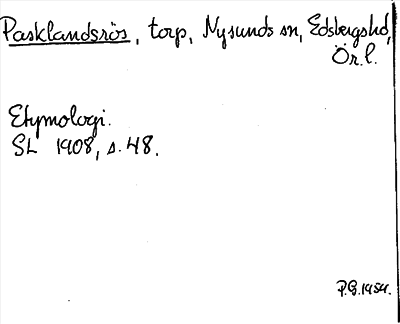 Pasklandsrös, torp, Nysunds sn, Edsbergshd,
Ör.l.
Etymologi.
SL 1908, s. 48.
P.G. 1954.